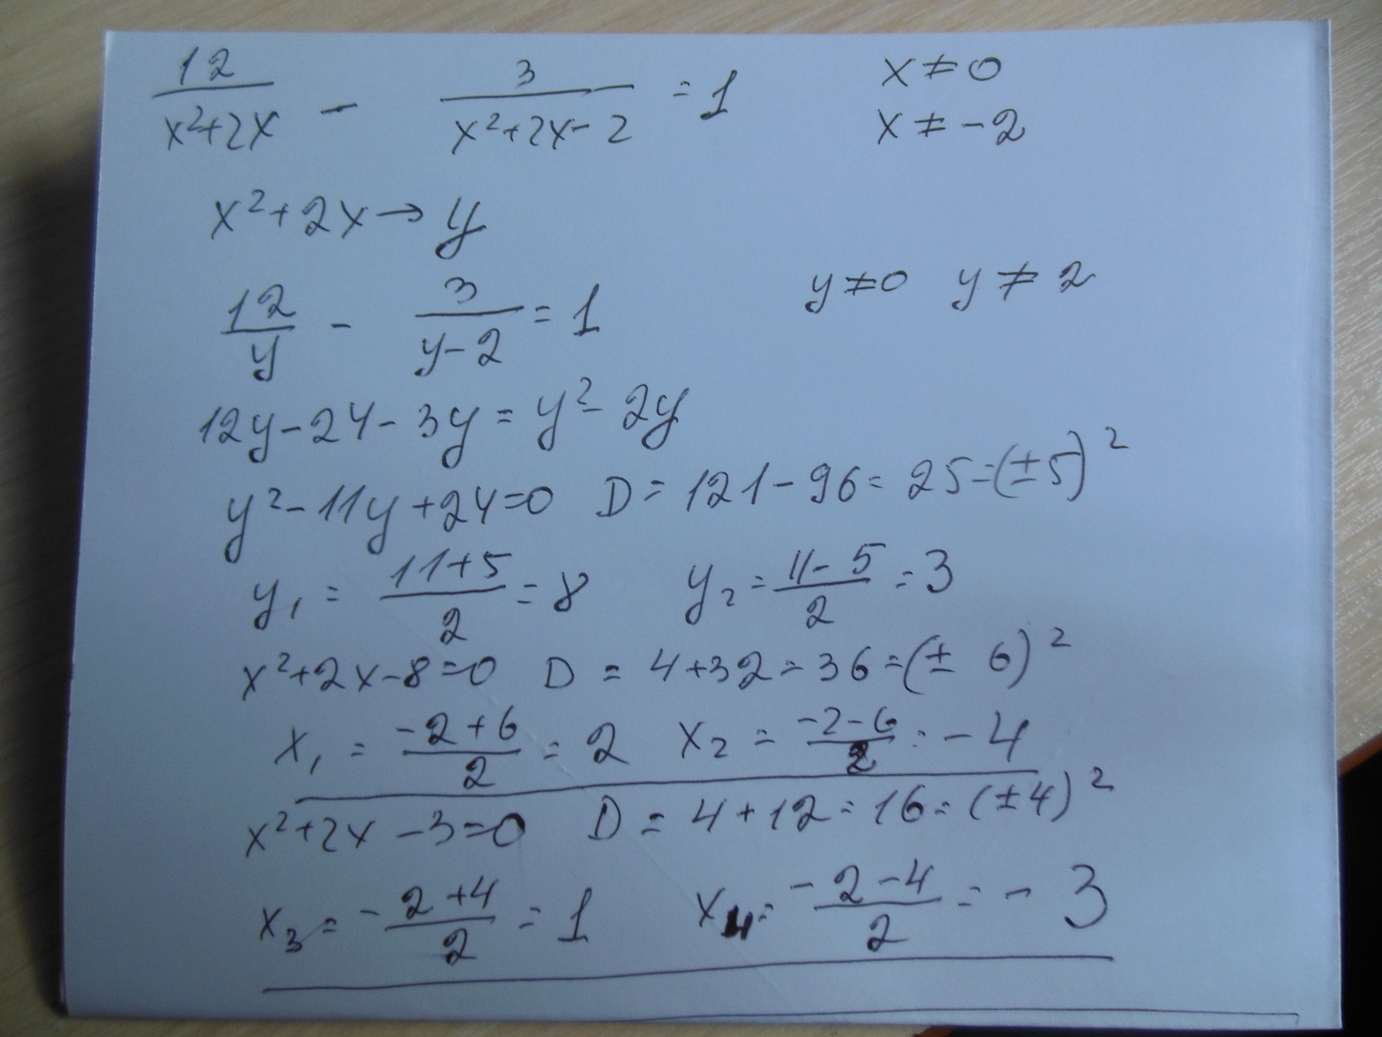 12/(x²+2x) - 3/(x²+2x-2) = 1 x≠0
x≠-2
x²+2x→y
12/y - 3/(y-2) = 1 y≠0 y≠2
12y-24-3y=y²-2y
y²-11y+24=0 D=121-96=25=(±5)²
y₁ = (11+5)/2 = 8 y₂ = (11-5)/2 = 3
x²+2x-8=0 D = 4+32=36=(± 6)²
x₁ = (-2+6)/2 = 2 x₂ = (-2-6)/2 = -4
x²+2x-3=0 D = 4+12=16=(±4)²
x₃ = (-2+4)/2 = 1 x₄ = (-2-4)/2 = -3